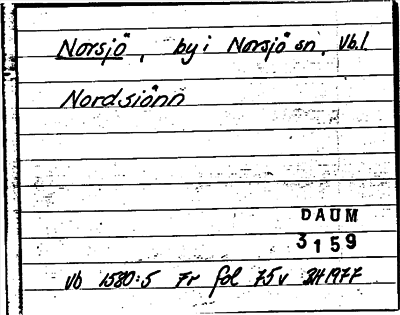 Norsjö, by i Norsjö sn, Vb.l.
Nordsiönn
DAUM
3159
Vb 1580:5 Fr fol 75v BH 1977